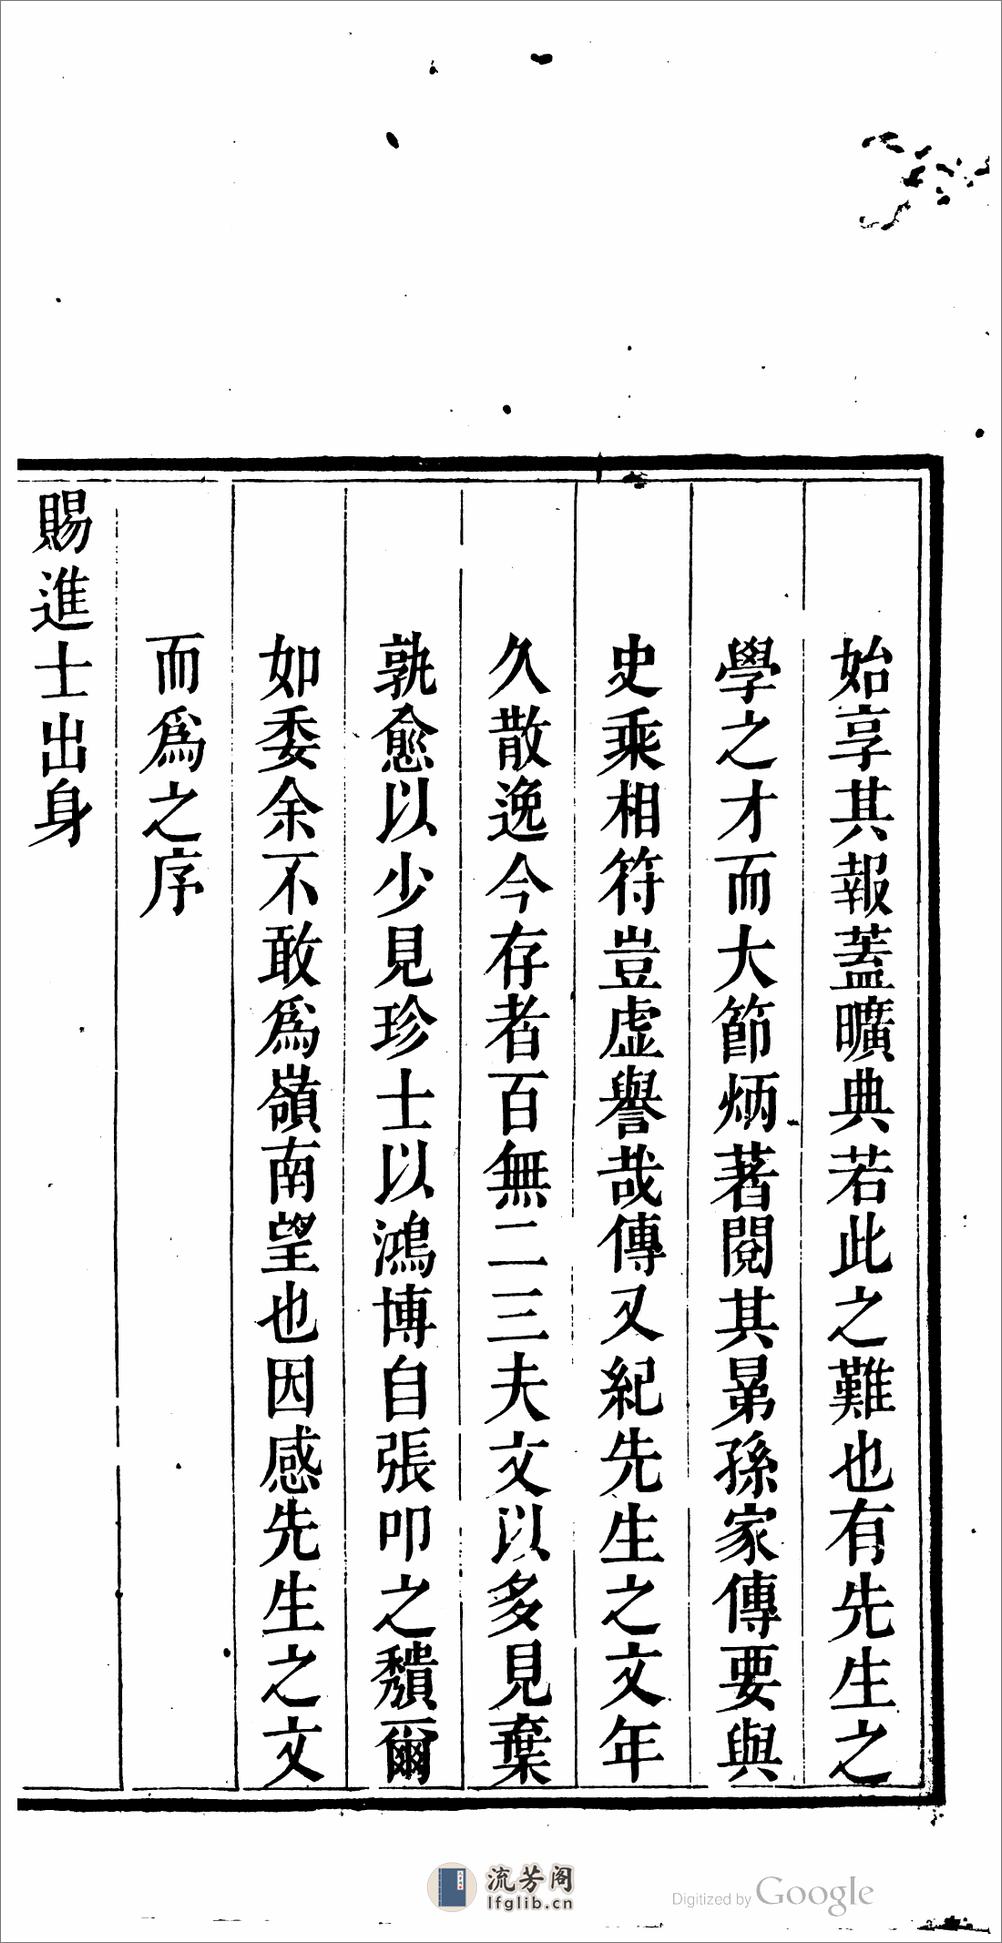 始享其報蓋曠典若此之難也有先生之
學之才而大節炳著閱其晜孫家傳要與
史乘相符豈虛譽哉傳又紀先生之文年
久散逸今存者百無二三夫文以多見棄
孰愈以少見珍士以鴻博自張叩之穨爾
如委余不敢爲嶺南望也因感先生之文
而爲之序
賜進士出身
流芳阁
lfglib.cn
Digitized by Google